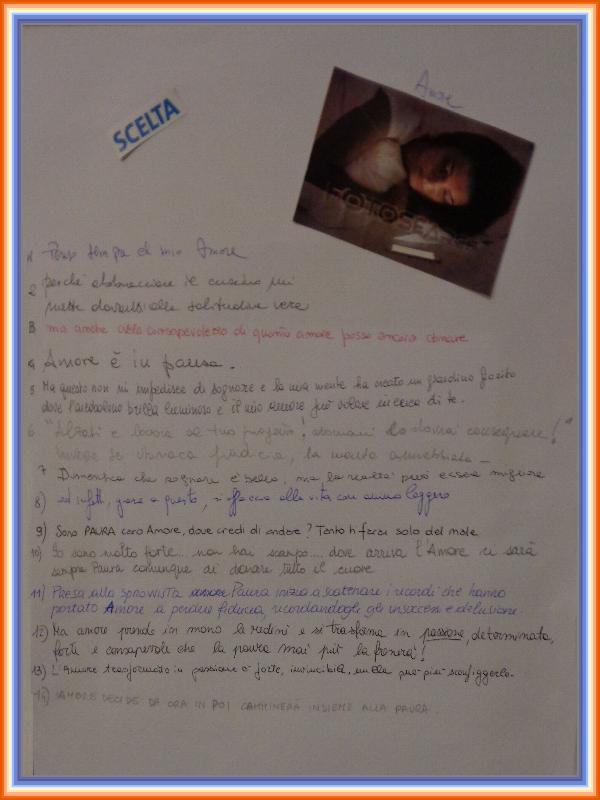 Amore
SCELTA
FOTOSEARCH
1 Penso sempre al mio Amore
2 perché abbracciare il cuscino mi
mette davanti alla solitudine vera
3 ma anche alla consapevolezza di quanto amore posso ancora donare
4 Amore è in pausa.
5 Ma questo non mi impedisce di sognare e la mia mente ha creato un giardino fiorito
dove l'arcobaleno brilla luminoso e il mio amore può volare in cerca di te.
6 "Alzati e lavora al tuo progetto! domani lo dovrai consegnare!"
invece se stanca la mente annebbiata -
7 Dimentica che sognare è bello, ma la realtà può essere migliore
8) ed infatti, grazie a questo, si affaccia alla vita con animo leggero
9) Sono PAURA caro Amore, dove credi di andare? Tanto ti farai solo del male
10) Io sono molto forte... non hai scampo... dove arriva l'Amore ci sarà
sempre Paura comunque di donare tutto il cuore
11) Presa alla sprovvista Paura inizia a scatenare i ricordi che hanno
portato Amore a perdere fiducia, ricordandogli gli insuccessi e delusione.
12) Ma amore prende in mano le redini e si trasforma in passione, determinata,
forte e consapevole che la paura mai più la fermerà!
13) L'Amore trasformato in passione è forte, invincibile, nulla può più sconfiggerlo.
14) AMORE DECIDE DA ORA IN POI CAMMINERÀ INSIEME ALLA PAURA.